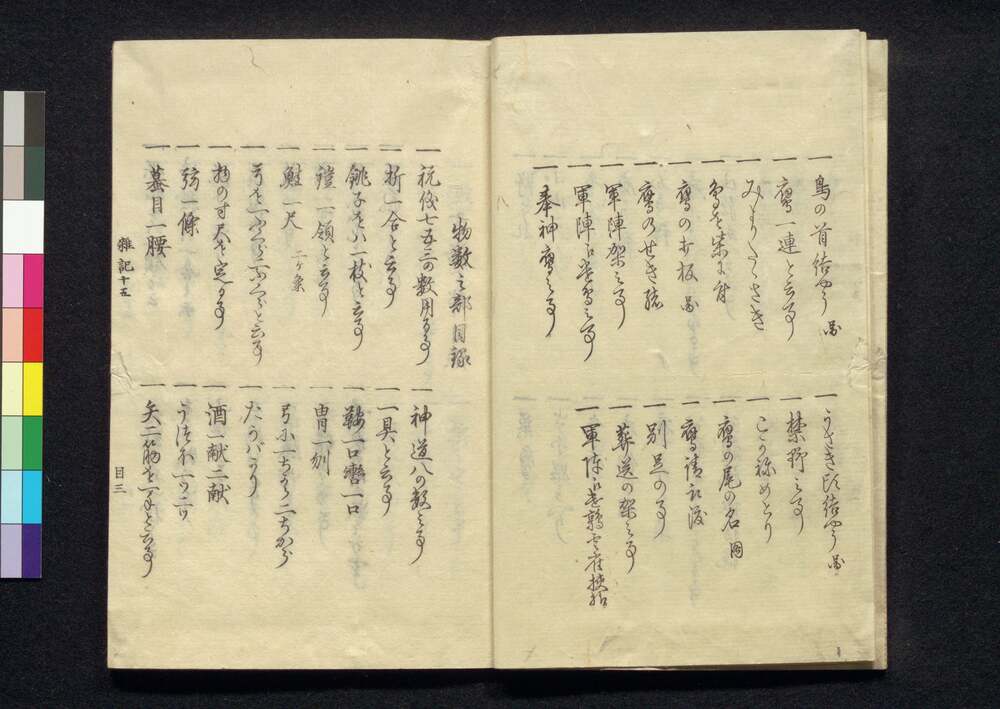 一 鳥の首結やう 図
一 鷹一連と云事
一 みよりたなさき
一 鳥を柴に付
一 鷹の打板 図
一 鷹のせき緒
一 軍陣架之事
一 軍陣に
一 奉神鷹之事
一 うさき頭結やう 図
一 禁野之事
一 こかねめとり
一 鷹の尾の名 図
一 鷹請取渡
一 別足の事
一 葬送の架之事
一 軍陣に
物数之部目録
一 祝儀七五三の数用る事
一 折一合と云事
一 銚子を八一枝と云事
一 鎧一領と云事
一 鮭一尺 二ヶ条
一 弓を
一 物の寸尺を定る事
一 弦一條
一 蟇目一腰
一 神道八の数之事
一 一具と云事
一 鞍一口轡一口
一 冑一刎
一 弓に一ちから二ちから
一 たうばかり
一 酒一献二献
一 うつほ一つ二つ
一 矢二筋を一手と云事
雑記十五
目三